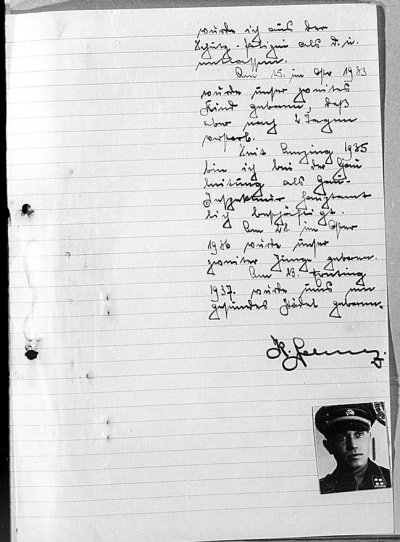 wurde ich aus der
Schutz-Polizei als d.u.
entlassen.
Am 15. im 1933
wurde unser zweites
Kind geboren, daß
aber nach 2 Tagen
verstarb.
Seit Lenzing 1935
bin ich bei der Gau
leitung als Gau-
Inspekteur hauptamt
lich beschäftigt.
Am 28. im
1936 wurde unser
zweiter Junge geboren.
Am 13. Ernting
1937. wurde uns ein
gesundes Mädel geboren.